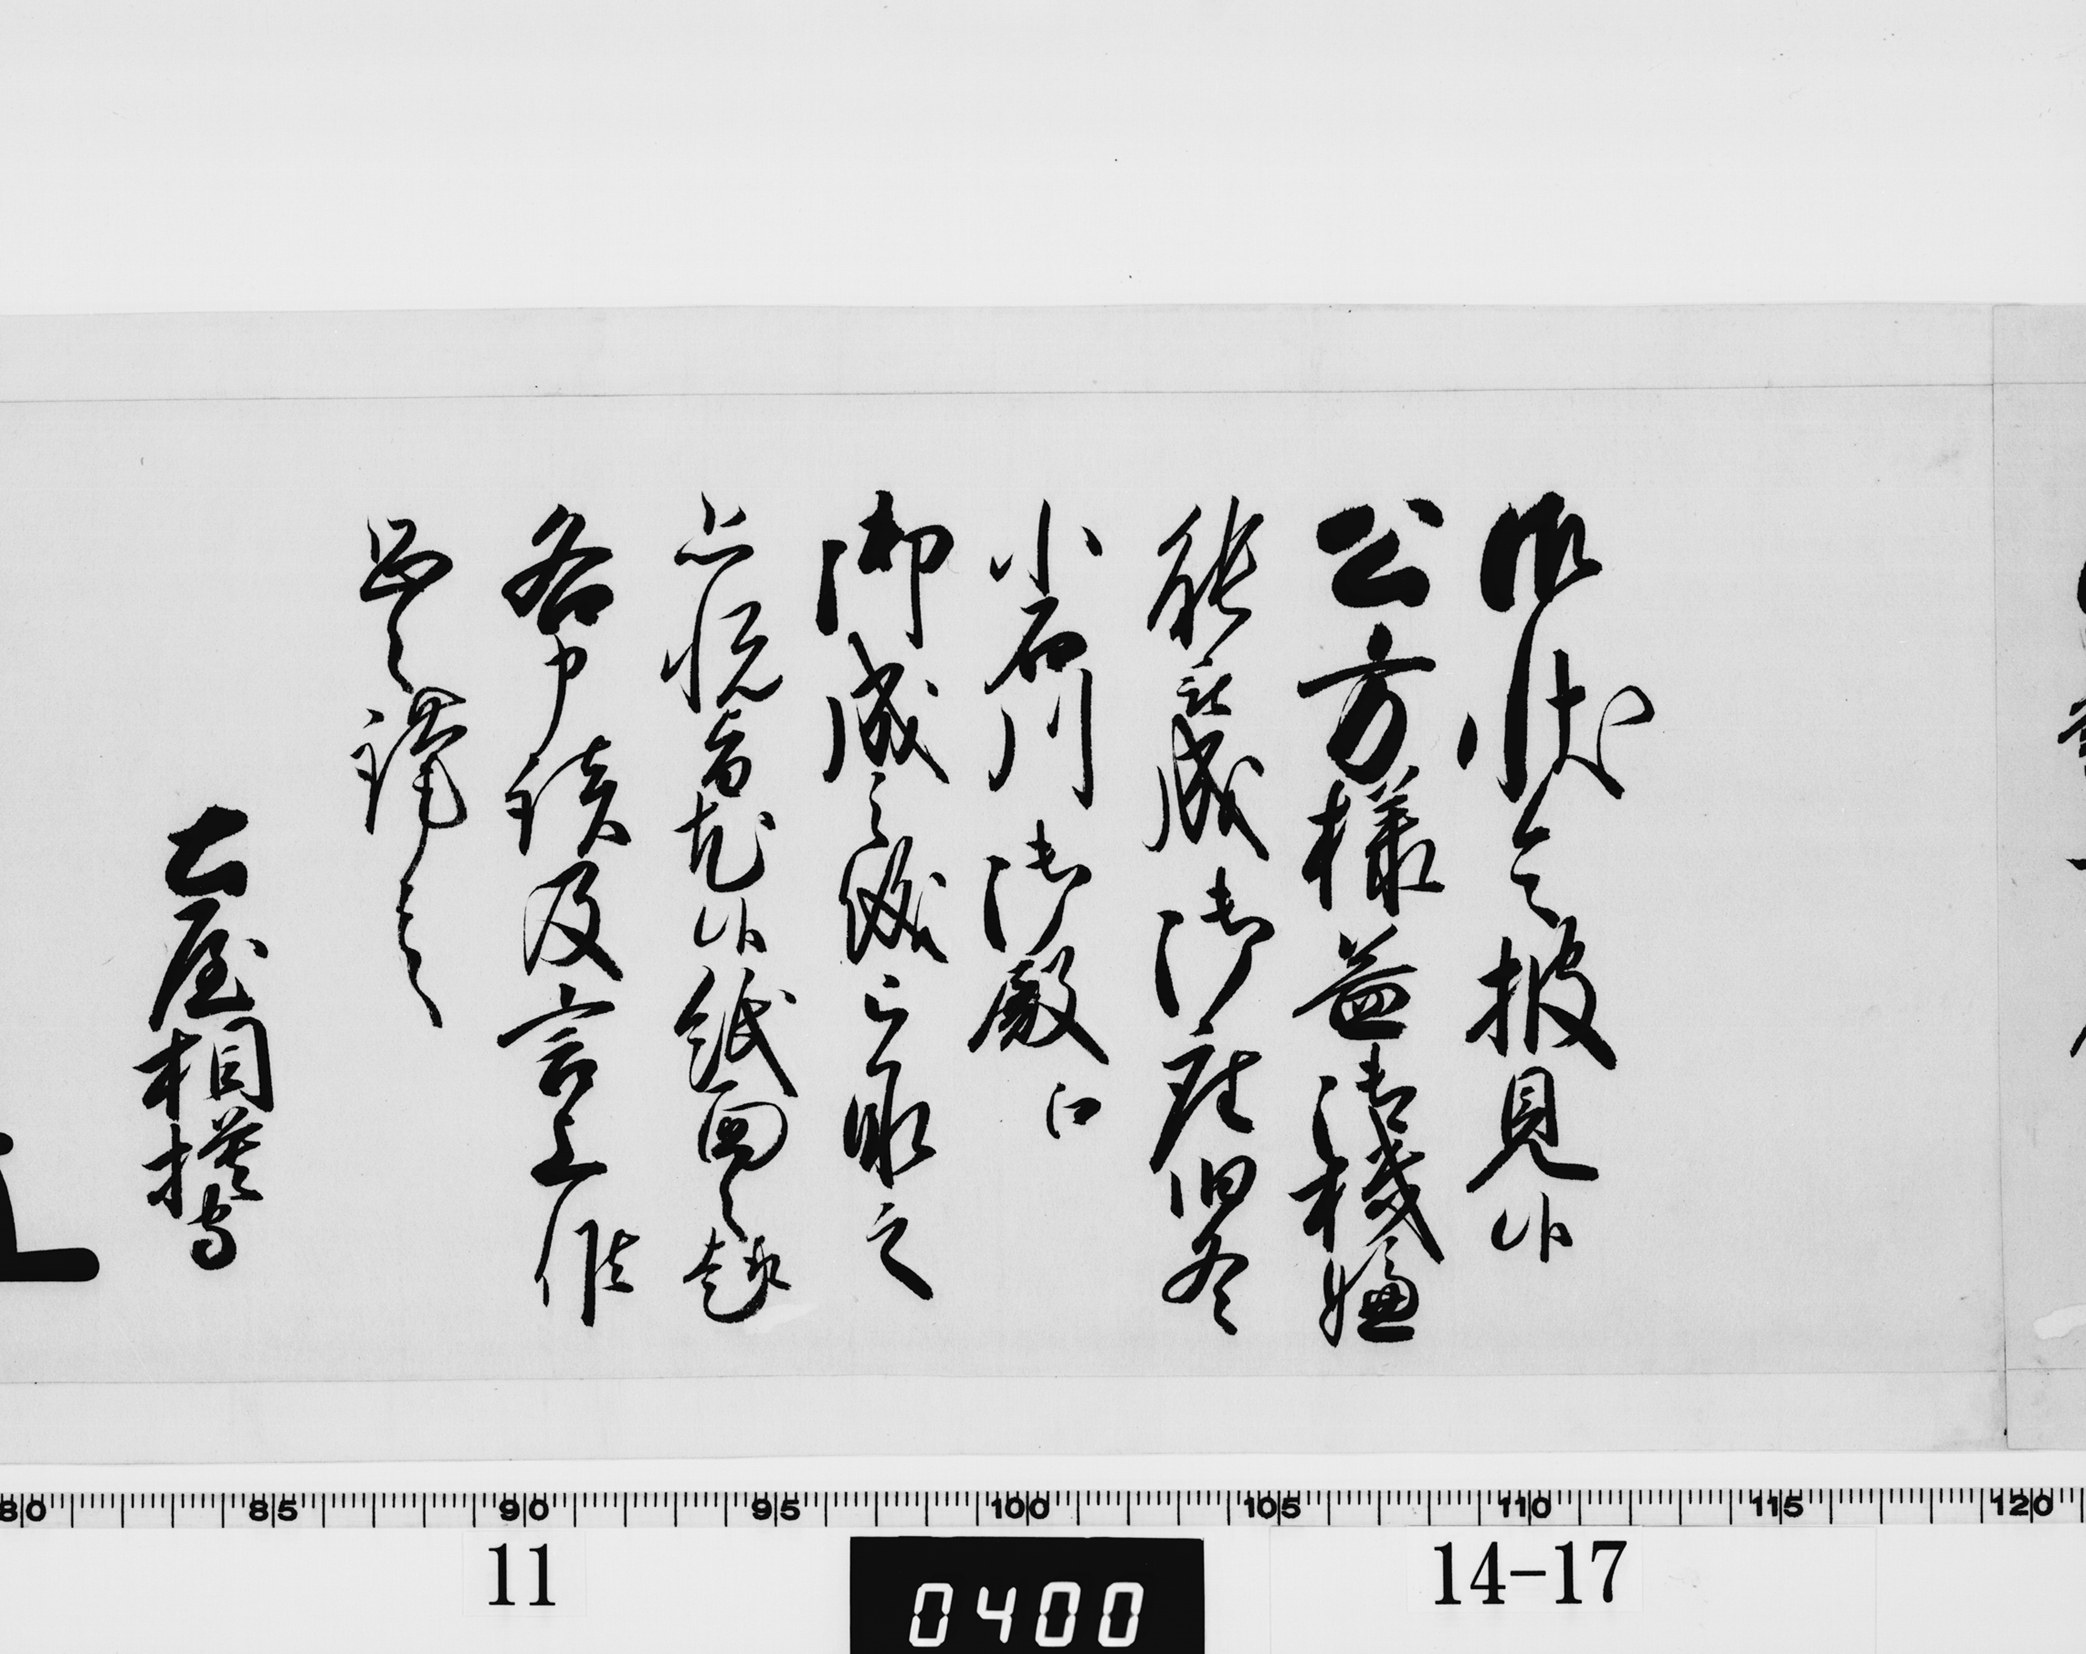 御状令披見候
公方様益御機嫌
能被成御座旧冬
小石川御殿江
御成之儀被承之
恐悦旨尤候紙面之趣
各申談及言上候
恐々謹言
土屋相模守
80 85 90 95 100 105 110 115 120
11
0400
14-17